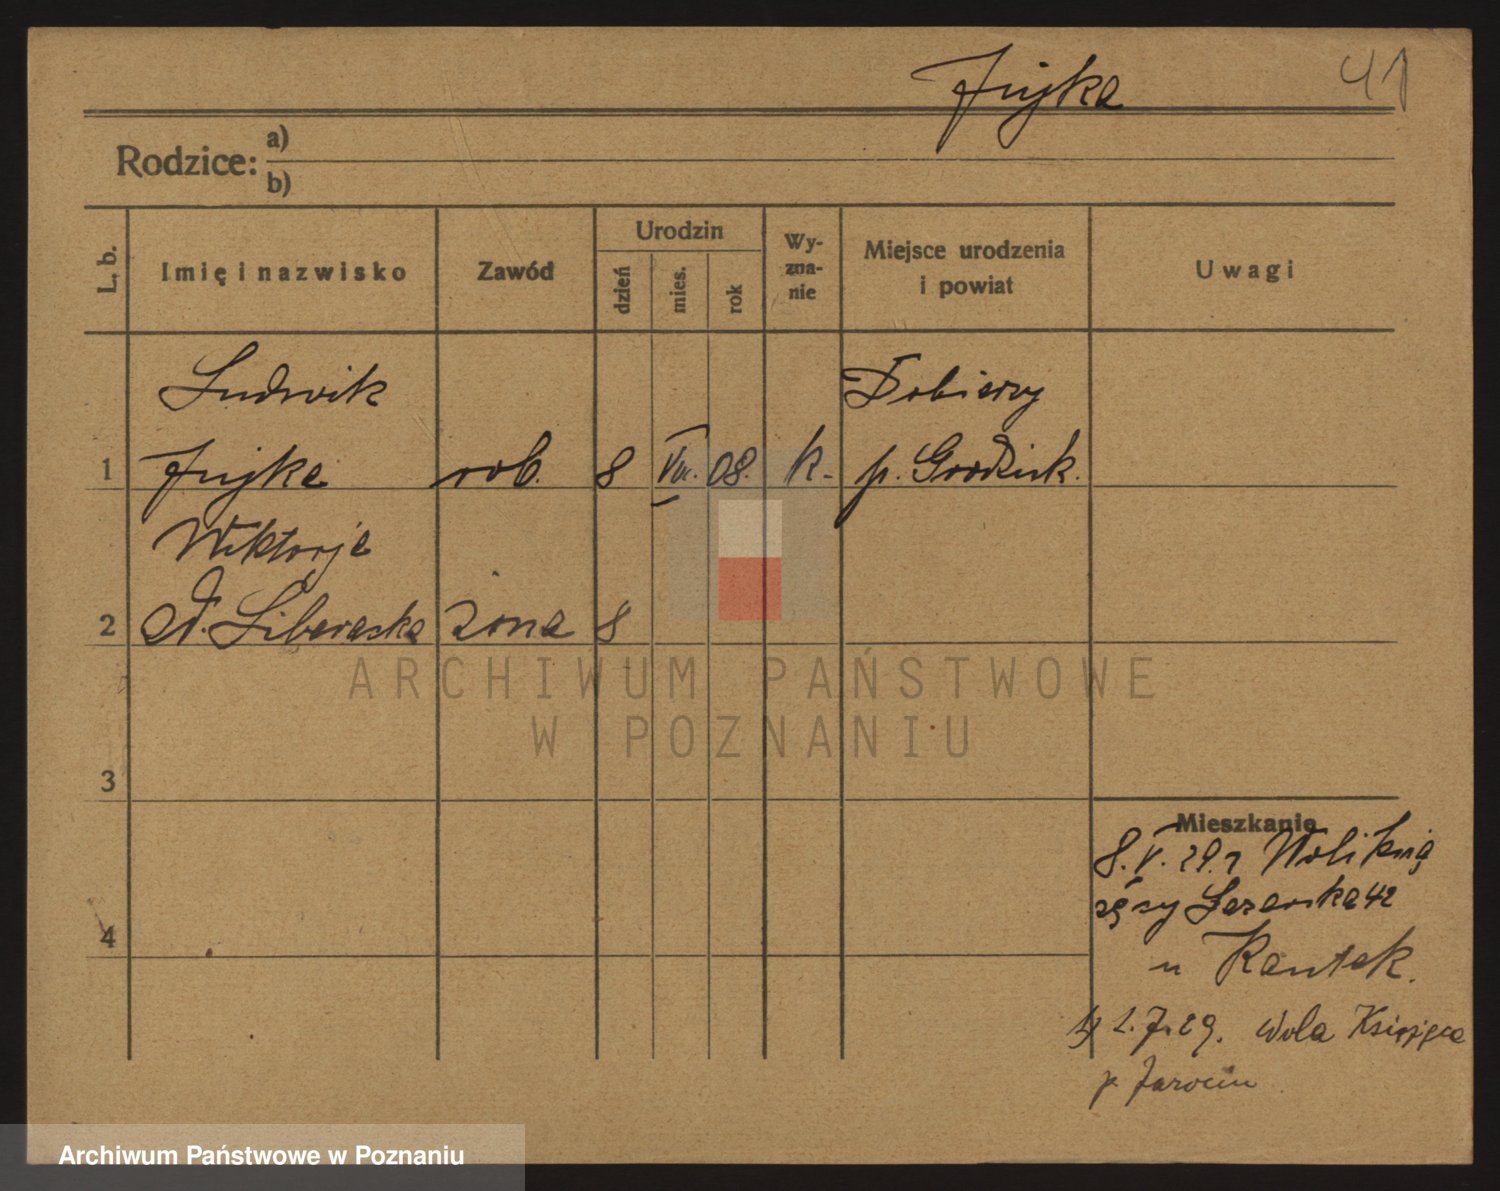 Fujka 41
Rodzice: a)
b)
L. b.
Imię i nazwisko
Zawód
Urodzin
dzień
mies.
rok
Wy-
zna-
nie
Miejsce urodzenia
i powiat
Uwagi
Ludwik Dobierzy
1 Fujka rob. 8 VIII. 08. k. p. Grodzisk.
Wiktorja
2 żona 8
3
4
Mieszkanie
8. V. 29. z Woli Ksią
żęcy 42
u Kantek.
1.7.29. Wola Książęca
p. Jarocin
ARCHIWUM PAŃSTWOWE
W POZNANIU
Archiwum Państwowe w Poznaniu